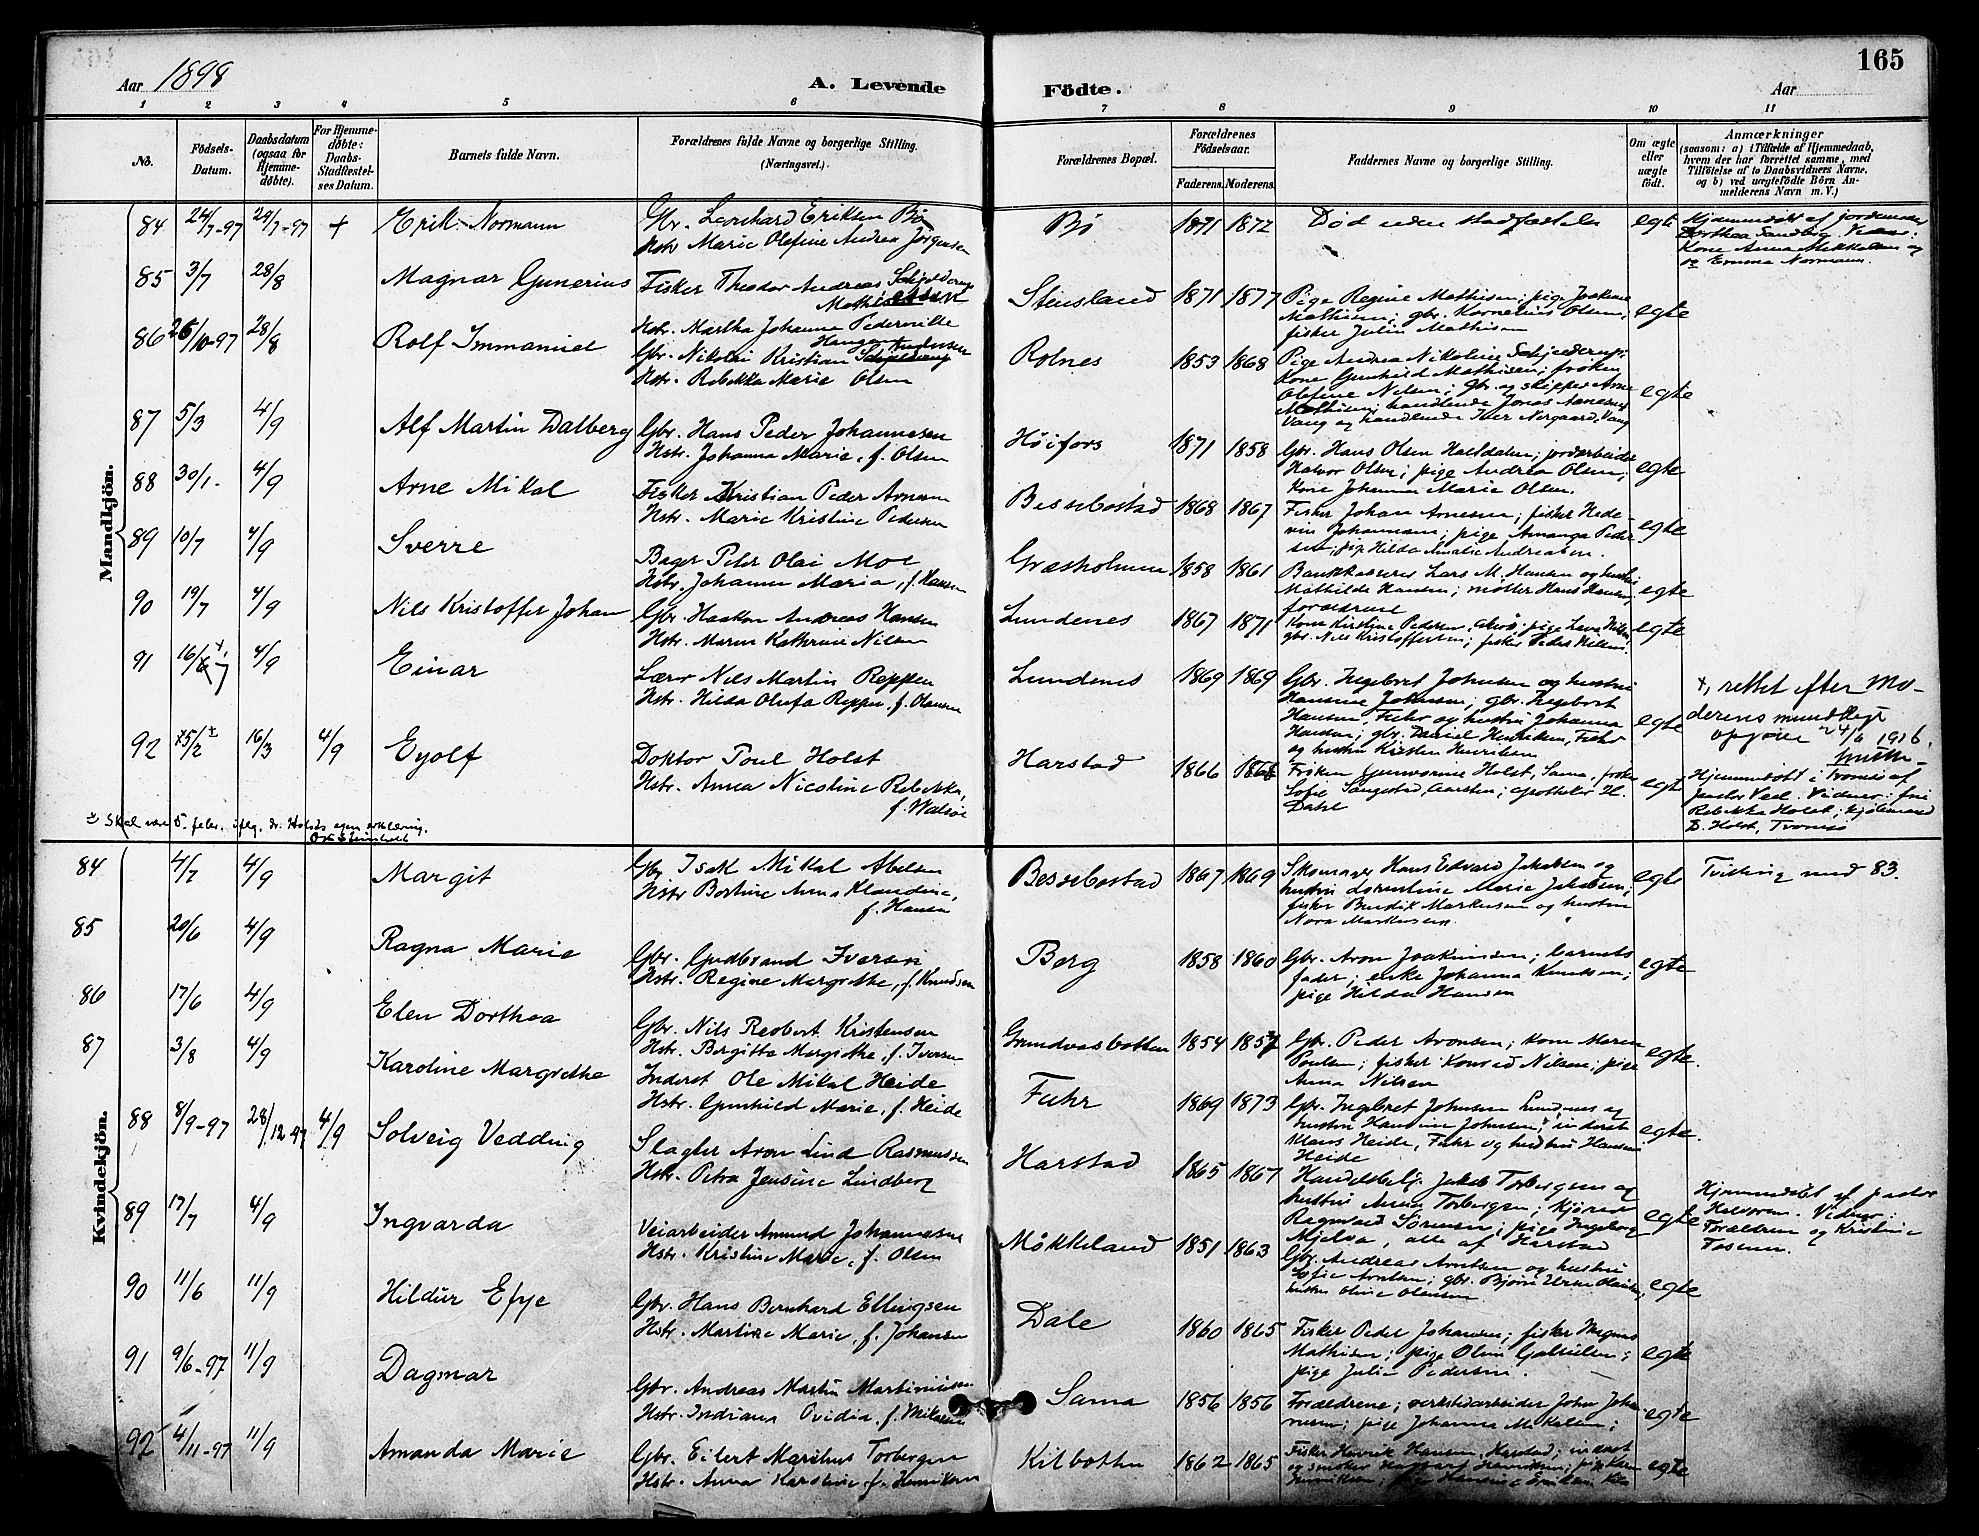 165
Aar 1898
A. Levende
Födte.
Aar
1 2 3 4 5 6 7 8 9 10 11
No.
Födsels-Datum.
Daabsdatum (ogsaa for Hjemme-döbte).
For Hjemme-döbte: Daabs-Stadfæstel-ses Datum.
Barnets fulde Navn.
Forældrenes fulde Navne og borgerlige Stilling.
(Næringsvei.)
Forældrenes Bopæl.
Forældrenes Födselsaar.
Faderens. Moderens.
Faddernes Navne og borgerlige Stilling.
Om ægte eller uægte födt.
Anmærkninger
(saasom: a) i Tilfælde af Hjemmedaab,
hvem der har forrettet samme, med
Tilföielse af to Daabsvidners Navne,
og b) ved uægtefödte Börn An-
melderens Navn m. V.)
Mandkjön.
84 24/7-97 29/7-97 + Erik Normann
Gbr. Leonhard Eriksen Bö
Hstr. Marie Olefine Andrea Jörgensen
Bö 1871 1872 Död uden stadfæstelse egte
Hjemmedöbt af jordemoder
Dorthea Sandberg. Vidner:
Kone Anna Mikkelsen og
Emma Normann.
85 3/7 28/8 Magnar Gunerius
Fisker Theodor Andreas
Mathisen
Hstr. Martha Johanna Pedernille
Stensland 1871 1877
Pige Regine Mathisen; pige
Mathisen; gbr. Kornelius Olsen;
fisker Julin Mathisen
egte
86 26/10-97 28/8 Rolf Immanuel
Gbr. Nikolai Kristian
Hstr. Rebekka Marie Olsen
Rolnes 1853 1868
Pige Andrea Nikoline Schjelderup;
Kone Gunhild Mathisen; fröken
Olefine Nilsen; gbr. og skipper Arne
Mathisen; handlende Jonas
Vang og handlende Iver Nergaard, Vang
egte
87 5/3 4/9 Alf Martin Dalberg
Gbr. Hans Peder Johannesen
Hstr. Johanna Marie, f. Olsen
Höifors 1871 1858
Gbr. Hans Olsen; jordarbeider
Halvor Olsen; pige Andrea Olsen;
Kone Johanna Marie Olsen.
egte
88 30/1. 4/9 Arne Mikal
Fisker Kristian Peder Arnesen
Hstr. Marie Kristine Pedersen
Bessebostad 1868 1867
Fisker Johan Arnesen; fisker Hede-
vin Johannesen; pige Amanga Peder-
sen; pige Hilda Amalie Andreasen.
egte
89 10/7 4/9 Sverre
Bager Peter Olai Moe
Hstr. Johanna Maria, f. Hansen
Græsholmen 1858 1861
Bankkasserer Lars M. Hansen og hustru
Mathilde Hansen; möller Hans Hansen;
forældrene
egte
90 19/7 4/9 Nils Kristoffer Johan
Gbr. Haakon Andreas Hansen
Hstr. Maren Kathrine Nilsen
Lundenes 1867 1871
Kone Kirstine Pedersen; pige Lava Nilsen;
gbr. Nils Kristoffersen; fisker Peder Nilsen.
egte
91 16/7 +, 4/9 Einar
Lærer Nils Martin Reppen
Hstr. Hilda Olufa Reppen, f. Hansen
Lundenes 1869 1869
Gbr. Ingebret Johnsen og hustru
Hansine Johnsen, gbr. Ingebret
Hansen, Fuhr og hustru Johanna
Hansen; gbr. Daniel Henriksen, Fuhr
og hustru Kirsten Henriksen
egte
+, rettet efter Mo-
derens mundtlige
opgave 24/6 1916.
92 15/2 ± 16/3 4/9 Eyolf
Doktor Poul Holst
Hstr. Anna Nicoline Rebekka,
f. Walsöe
Harstad 1866 1868
Fröken Gunvorine Holst, Sama, fröken
Sofie Sangestad, Aarsten; apotheker H.
Dahl
egte
Hjemmedöbt i Tromsö af
pastor Ved. Vidner: frk
Rebekka Holst, kjöbmand
D. Holst, Tromsö
± Skal være 5. febr. iflg. dr. Holsts egen erklæring.
Kvindekjön.
84 4/7 4/9 Margit
Gbr. Isak Mikal Abelsen
Hstr. Bertine Anna Klaudine,
f. Hansen
Bessebostad 1867 1869
Skomager Hans Edvard Jakobsen og
hustru Dorentine Marie Jakobsen,
fisker Bendik Markussen og hustru
Nora Markussen.
egte
Tvilling med 83.
85 20/6 4/9 Ragna Marie
Gbr. Gudbrand Iversen
Hstr. Regine Margrethe, f. Knudsen
Berg 1858 1860
Gbr. Aron Joakimsen; barnets
fader; enke Johanna Knudsen;
pige Hilda Hansen
egte
86 17/6 4/9 Elen Dorthea
Gbr. Nils Resbert Kristensen
Hstr. Bergitta Margrethe, f. Iversen
Grundvasbotten 1854 1857
Gbr. Peder Aronsen; kone Maren
Poulsen; fisker Konrad Nilsen; pige
Anna Nilsen
egte.
87 3/8 4/9 Karoline Margrethe
Inderst Ole Mikal Heide
Hstr. Gunhild Marie, f. Heide
Fuhr 1869 1873
Gbr. Ingebret Johnsen Lundenes og
hustru Hansine Johnsen; inderst
Klaus Heide, Fuhr og hustru Hansine
Heide
egte.
88 8/9-97 28/12 97 4/9 Solveig Vedding
Slagter Aron Lind Rasmussen
Hstr. Petra Jensine Lindberg
Harstad 1865 1867
Handelsbetj. Jakob Torbergsen og
hustru Anna Torbergsen; kjörer
Ragnvald Sörensen; pige Ingeborg
Mjelva, alle af Harstad
egte
Hjemmedöbt af pastor
Halvorsen. Vidner:
Forældrene og Kristine
89 17/7 4/9 Ingvarda
Veiarbeider Amund Johannesen
Hstr. Kristine Marie, f. Olsen
Mökkeland 1851 1863
Gbr. Andreas Arntsen og hustru
Sofie Arntsen; gbr. Björn
hustru Oline Olausen
egte
90 11/6 11/9 Hildur Efye
Gbr. Hans Bernhard Ellingsen
Hstr. Martine Marie, f. Johansen
Dale 1860 1865
Fisker Peder Johansen; fisker Magnus
Mathisen; pige Oline Gabrielsen;
pige Julie Pedersen.
egte
91 9/6-97 11/9 Dagmar
Gbr. Andreas Martin Martinussen
Hstr. Indiana Ovidia, f. Mikalsen
Sama 1856 1856
Forældrene; verkstedarbeider John Johan-
nesen; pige Johanna Mikalsen;
egte
92 4/11-97 11/9 Amanda Marie
Gbr. Eilert Marthus Torbergsen
Hstr. Anna Karoline, f. Henriksen
Kilbotten 1862 1865
Fisker Henrik Hansen, Harstad; inderst
egte